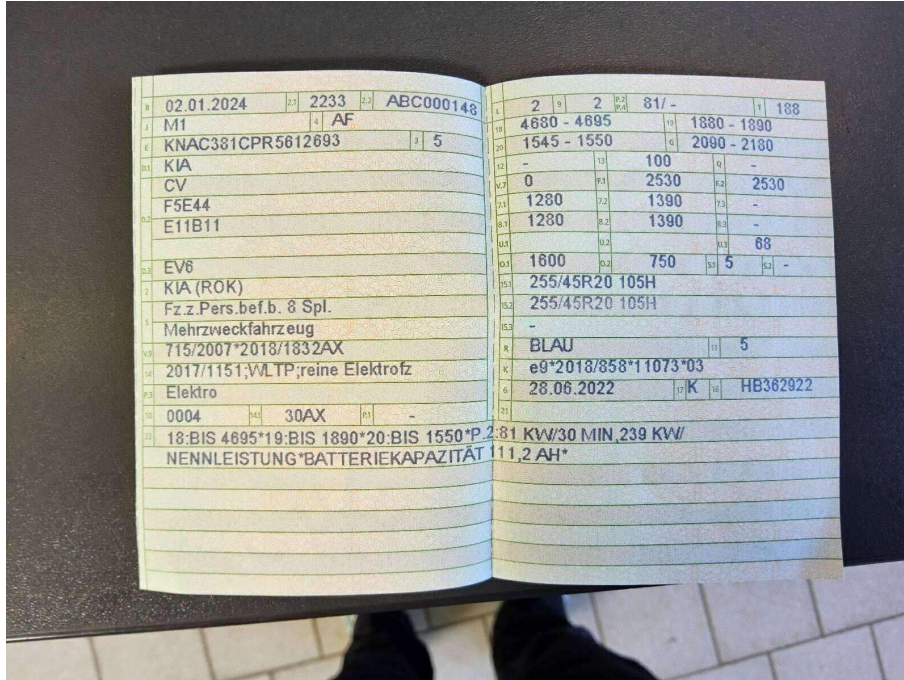 B 02.01.2024 2.1 2233 2.2 ABC000148
J M1 4 AF
E KNAC381CPR5612693 3 5
D.1 KIA
CV
D.2 F5E44
E11B11
D.3 EV6
2 KIA (ROK)
5 Fz.z.Pers.bef.b. 8 Spl.
Mehrzweckfahrzeug
V.9 715/2007*2018/1832AX
14 2017/1151;WLTP;reine Elektrofz
P.3 Elektro
10 0004 14.1 30AX P.1 -
22 18:BIS 4695*19:BIS 1890*20:BIS 1550*P.2:81 KW/30 MIN,239 KW/
NENNLEISTUNG*BATTERIEKAPAZITÄT 111,2 AH*
L 2 9 2 P.2 P.4 81/ - T 188
18 4680 - 4695 19 1880 - 1890
20 1545 - 1550 G 2090 - 2180
12 - 13 100 Q -
V.7 0 F.1 2530 F.2 2530
7.1 1280 7.2 1390 7.3 -
8.1 1280 8.2 1390 8.3 -
U.1 U.2 U.3 68
O.1 1600 O.2 750 S.1 5 S.2 -
15.1 255/45R20 105H
15.2 255/45R20 105H
15.3 -
R BLAU 11 5
K e9*2018/858*11073*03
6 28.06.2022 17 K 16 HB362922
21